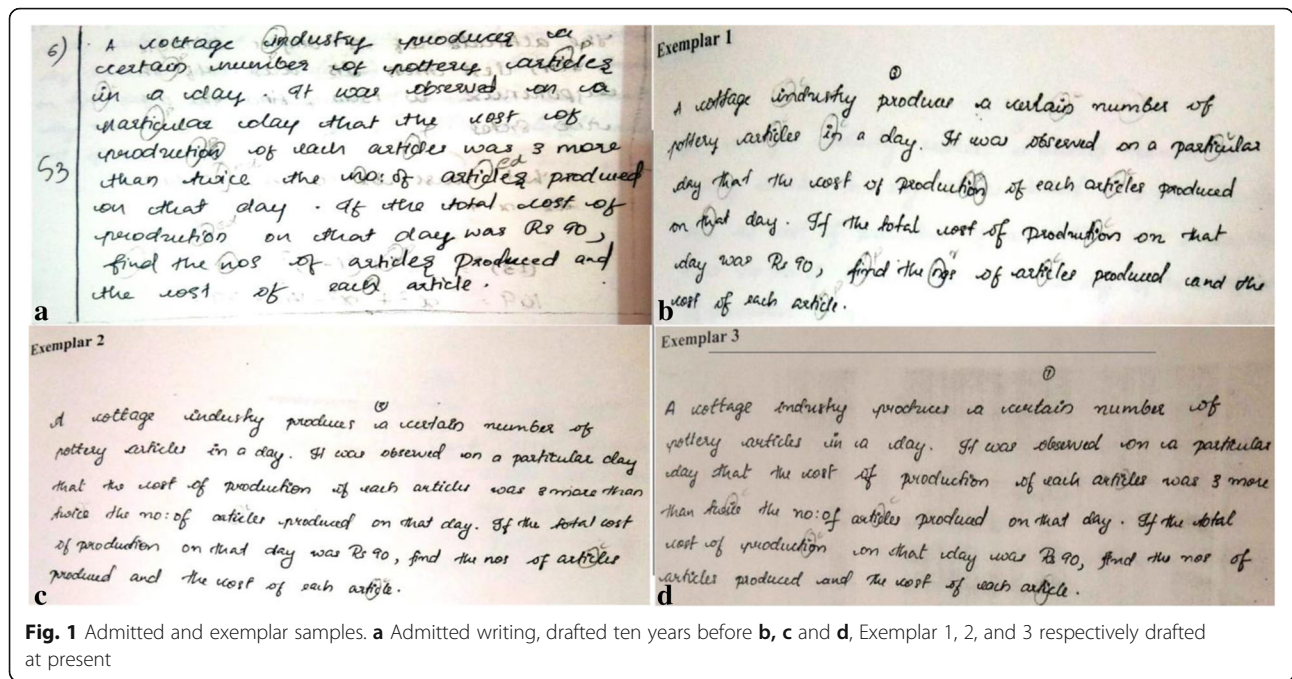 6) A cottage industry produces a
certain number of pottery articles
in a day. It was observed on a
particular day that the cost of
production of each articles was 3 more
53 than twice the no: of articles produced
on that day. If the total cost of
production on that day was Rs 90,
find the nos of articles produced and
the cost of each article.
a
Exemplar 1
3
A cottage industry produces a certain number of
pottery articles in a day. It was observed on a particular
day that the cost of production of each articles produced
on that day. If the total cost of production on that
day was Rs 90, find the nos of articles produced and the
cost of each article.
b
Exemplar 2
A cottage industry produces a certain number of
pottery articles in a day. It was observed on a particular day
that the cost of production of each articles was 3 more than
twice the no: of articles produced on that day. If the total cost
of production on that day was Rs 90, find the nos of articles
produced and the cost of each article.
c
Exemplar 3
A cottage industry produces a certain number of
pottery articles in a day. It was observed on a particular
day that the cost of production of each articles was 3 more
than twice the no: of articles produced on that day. If the total
cost of production on that day was Rs 90, find the nos of
articles produced and the cost of each article.
d
Fig. 1 Admitted and exemplar samples. a Admitted writing, drafted ten years before b, c and d, Exemplar 1, 2, and 3 respectively drafted
at present